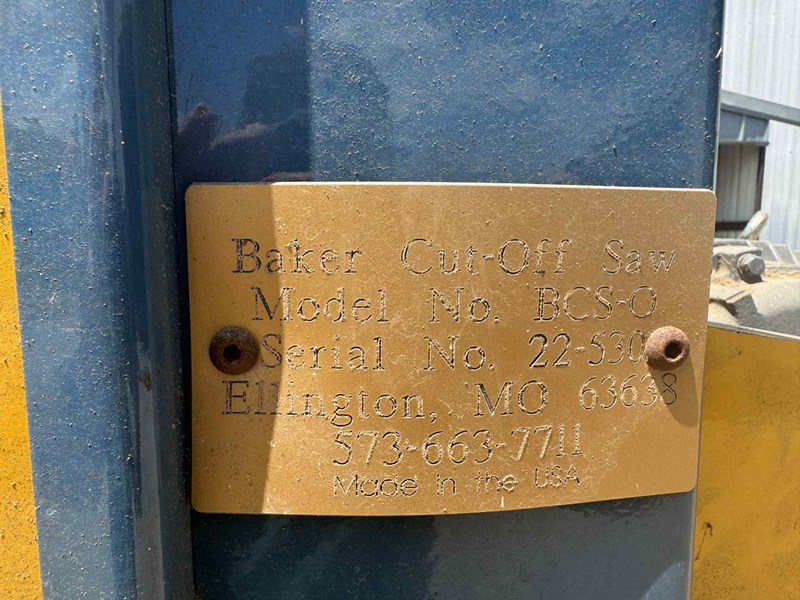 Baker Cut-Off Saw
Model No. BCS-O
Serial No. 22-530
Ellington, MO 63638
573-663-7711
Made in the USA